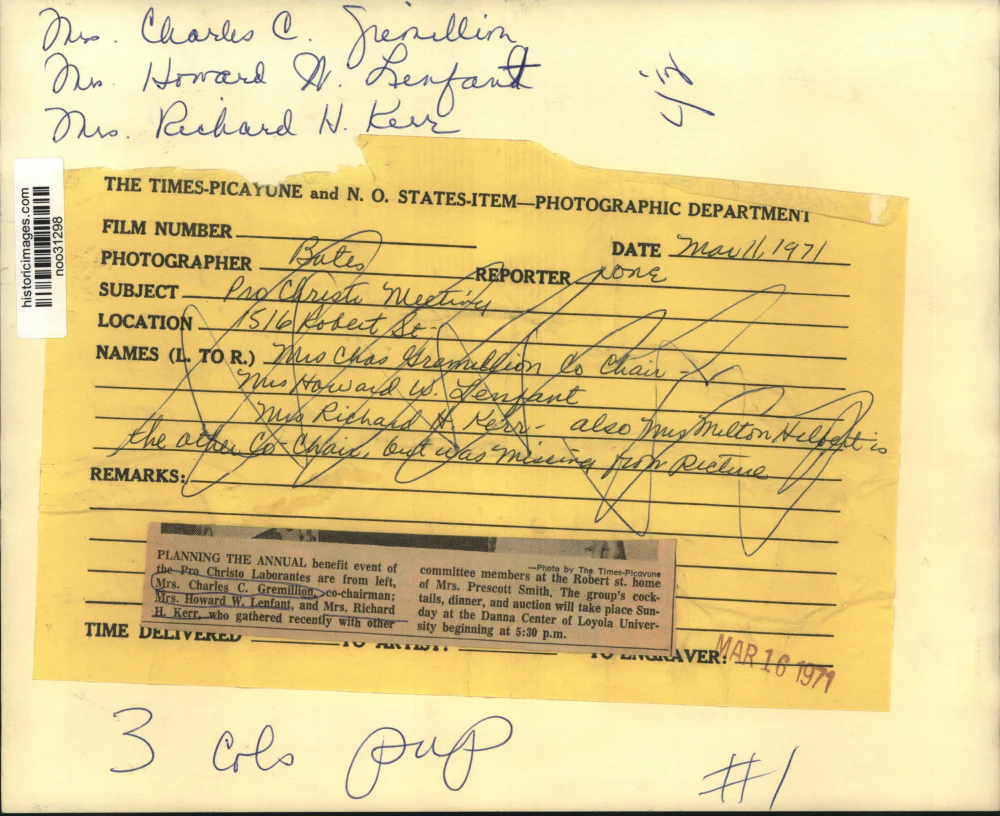 Mrs. Charles C. Gremillion
Mrs. Howard W. Lenfant
Mrs. Richard H. Kerr
historicimages.com
noo31298
THE TIMES-PICAYUNE and N. O. STATES-ITEM—PHOTOGRAPHIC DEPARTMENT
FILM NUMBER
DATE Mar 11, 1971
PHOTOGRAPHER Bates
REPORTER none
SUBJECT Pro Christo Meeting
LOCATION 1516 Robert St-
NAMES (L. TO R.) Mrs Chas Gramillion Co Chair -
Mrs Howard W. Lenfant
Mrs Richard H. Kerr - also Mrs Milton is
the other Co Chair, but was missing from Picture
REMARKS:
PLANNING THE ANNUAL benefit event of
the Pro Christo Laborantes are from left,
Mrs. Charles C. Gremillion, co-chairman;
Mrs. Howard W. Lenfant, and Mrs. Richard
H. Kerr, who gathered recently with other
—Photo by The Times-Picayune
committee members at the Robert st. home
of Mrs. Prescott Smith. The group's cock-
tails, dinner, and auction will take place Sun-
day at the Danna Center of Loyola Univer-
sity beginning at 5:30 p.m.
TIME DELIVERED TO ARTIST: TO ENGRAVER:
MAR 16 1971
3 cols pup
#1